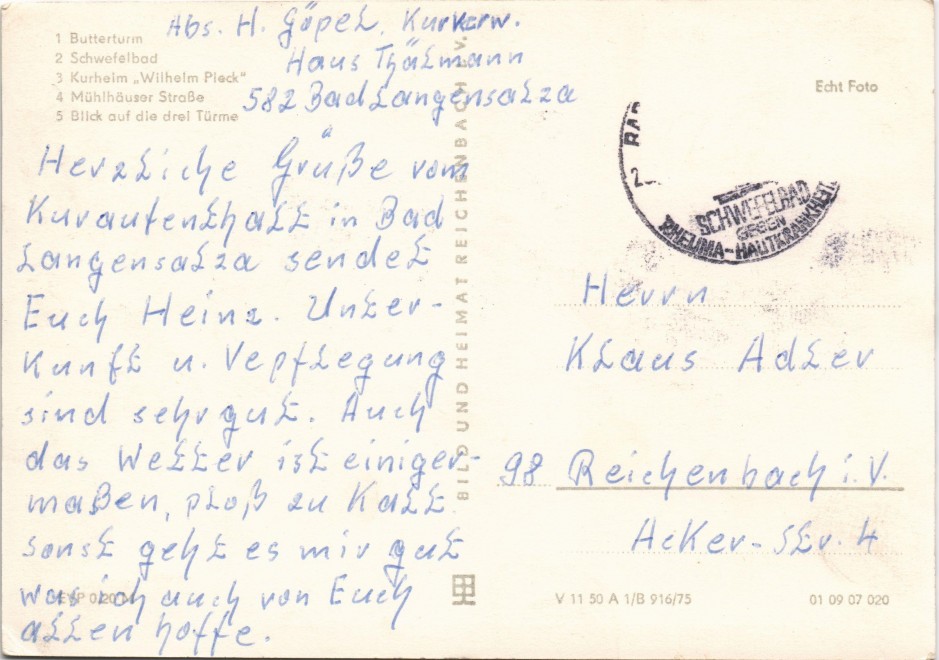 Abs. H. Göpel, Kurkorw.
Haus Thälmann
582 Bad Langensalza
1 Butterturm
2 Schwefelbad
3 Kurheim „Wilhelm Pieck"
4 Mühlhäuser Straße
5 Blick auf die drei Türme
Echt Foto
Herzliche Grüße vom
Kuraufenthalt in Bad
Langensalza sendet
Euch Heinz. Unter-
kunft u. Vepflegung
sind sehr gut. Auch
das Wetter ist einiger-
maßen, ploß zu kalt
sonst geht es mir gut
was ich auch von Euch
allen hoffe.
BILD UND HEIMAT REICHENBACH I. V.
SCHWEFELBAD
GEGEN
RHEUMA-HAUTKRANKHEIT
Herrn
Klaus Adler
98 Reichenbach i.V.
Acker-Str. 4
V 11 50 A 1/B 916/75
01 09 07 020